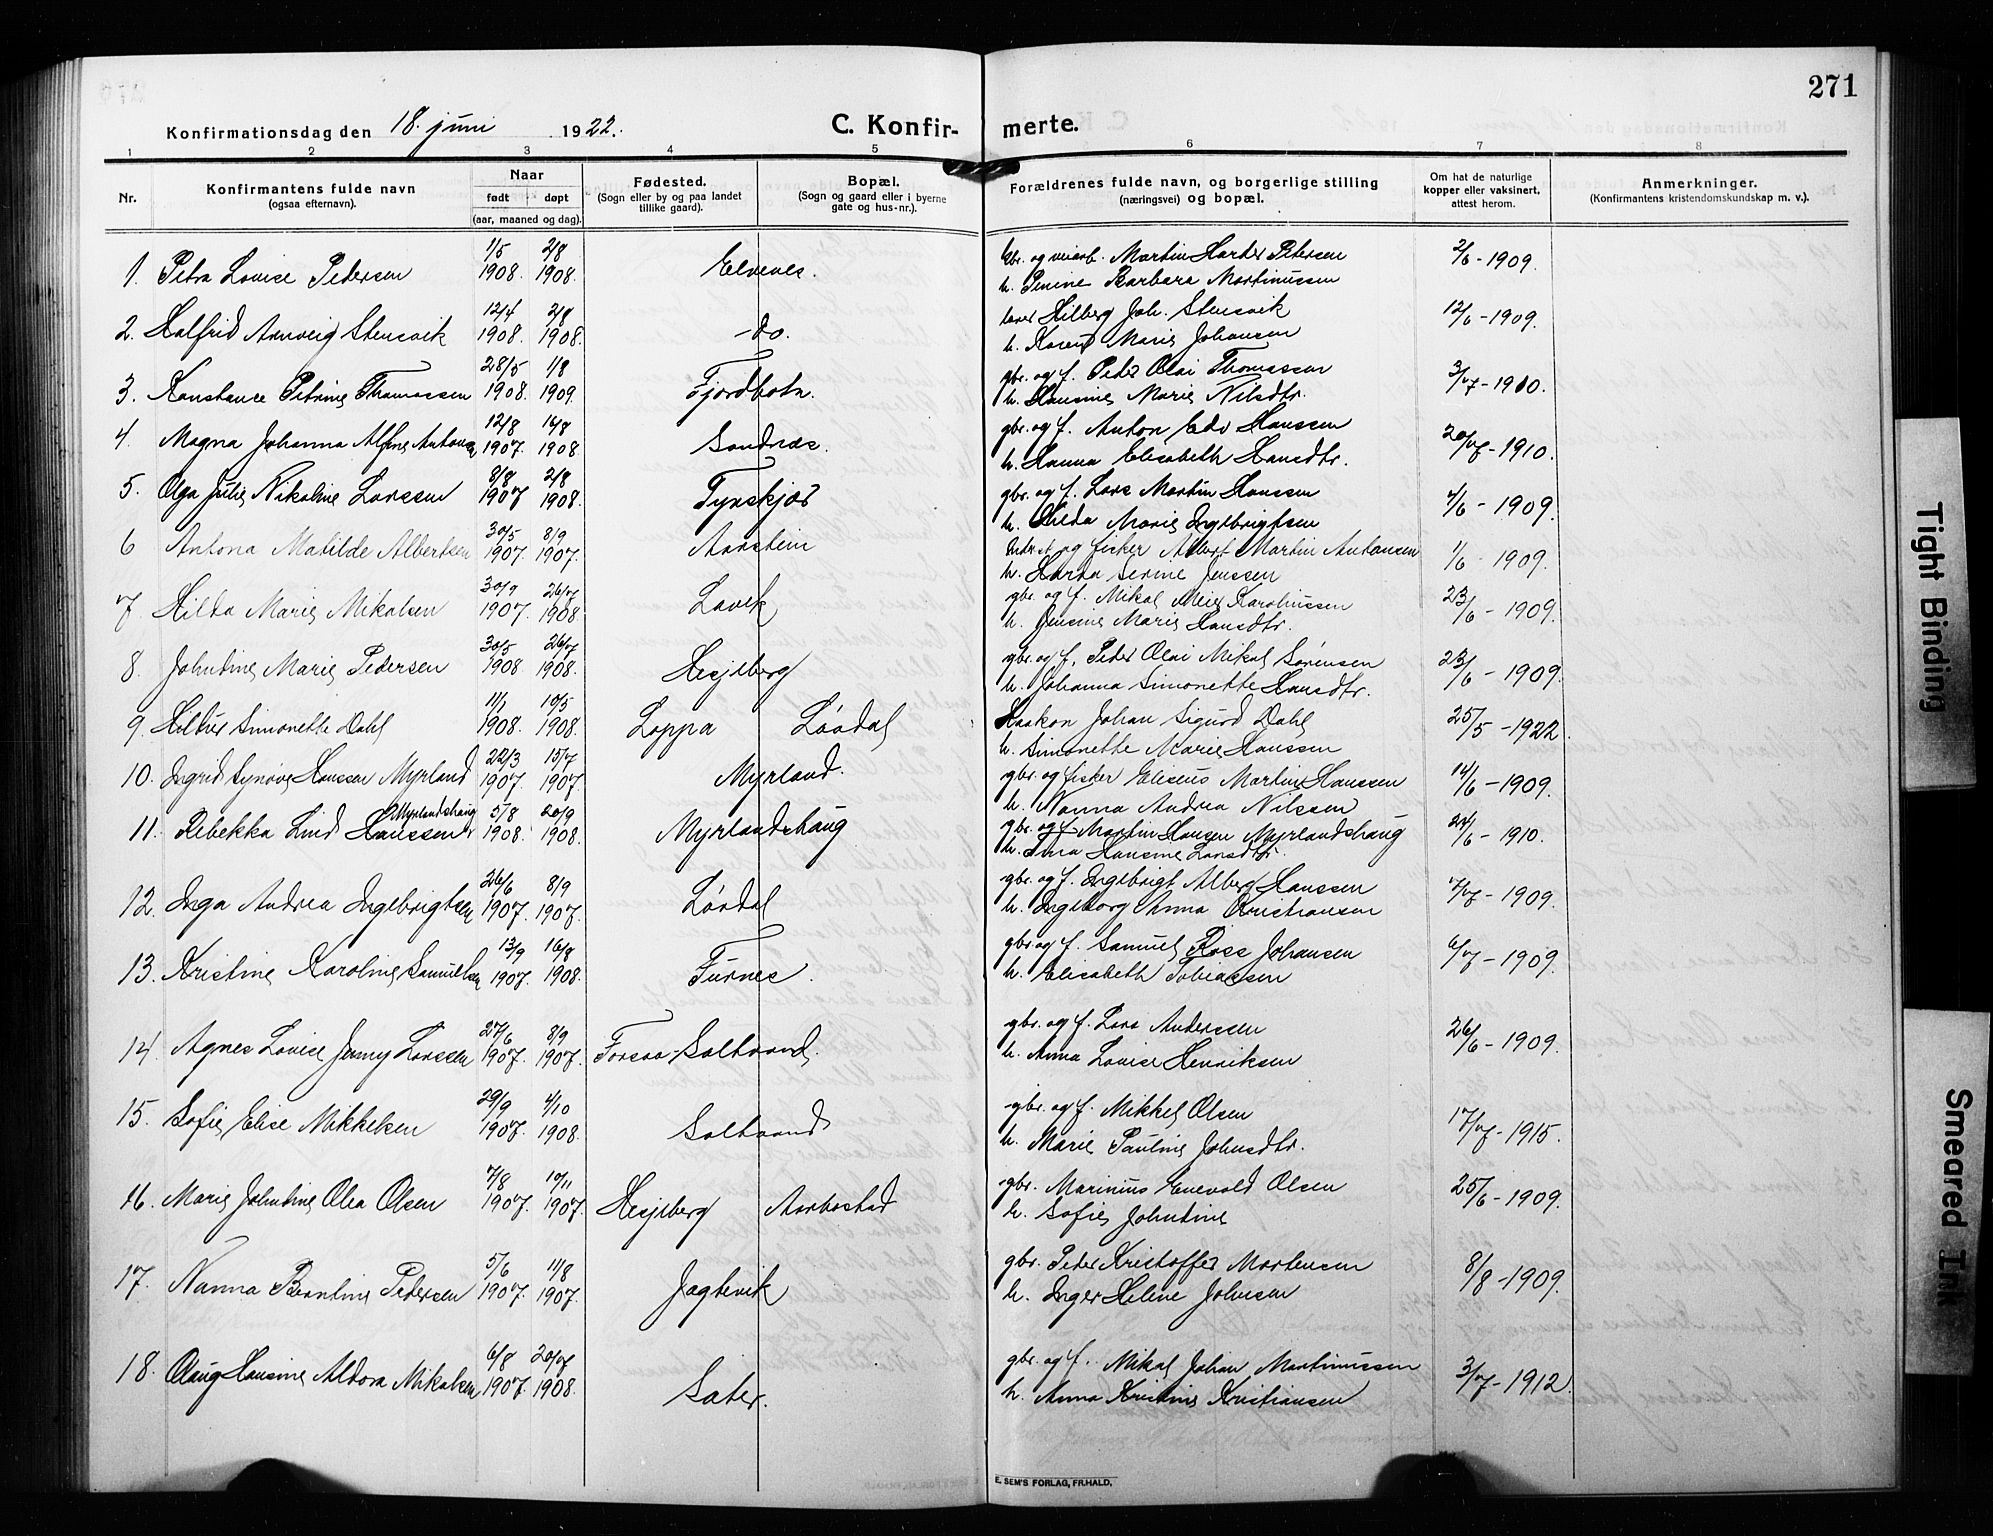 271
Konfirmationsdag den 18. juni 1922.
C. Konfir- merte.
1 2 3 4 5 6 7 8
Nr. Konfirmantens fulde navn (ogsaa efternavn). Naar født døpt (aar, maaned og dag). Fødested. (Sogn eller by og paa landet tillike gaard). Bopæl. (Sogn og gaard eller i byerne gate og hus-nr.). Forældrenes fulde navn, og borgerlige stilling (næringsvei) og bopæl. Om hat de naturlige kopper eller vaksinert, attest herom. Anmerkninger. (Konfirmantens kristendomskundskap m. v.).
1. Petra Lovise Pedersen 1/5 1908. 2/8 1908. Elvenes. gbr. og veiarb. Martin Harder Petersen 2/6 - 1909.
h. Penine Barbara Martinussen
2. Halfrid Arnveig Stensvik 12/4 1908. 2/8 1908. do. lærer Hilberg Joh. Stensvik 12/6 - 1909.
h. Karen Marie Johansen
3. Konstance Petrine Thomassen 28/5 1908. 1/8 1909. Fjordbotn. gbr. og f. Peder Olai Thomassen 3/7 - 1910.
h. Hansine Marie Nilsdtr.
4 Magna Johanna Alfine Antons 12/8 1907. 16/8 1908 Sandnes. gbr. og f. Anton Edv Hanssen 20/7 - 1910.
h. Hanna Elisabeth Hansdtr.
5. Olga Julie Nikoline Larssen 9/8 1907 2/8 1908. Tynskjær gbr. og f. Lars Martin Hanssen 4/6 - 1909.
h. Hilda Marie Ingebrigtsen
6 Antona Matilde Albertsen 30/5 1907. 8/9 1907. Aarstein og fisker Albert Martin Antonsen 1/6 - 1909.
h. Harda Serine Jenssen
7 Hilda Marie Mikalsen 30/9 1907. 26/7 1908 Lavik gbr. og f. Mikal Meier Karoliussen 23/6 - 1909.
h. Jensine Marie Hansdtr.
8. Johndine Marie Pedersen 30/5 1908 26/7 1908. Hesjeberg gbr. og f. Peder Olai Mikal Sørensen 23/6 - 1909.
h. Johanna Simonette Hansdtr.
9. Hildur Simonette Dahl 11/1 1908. 10/5 1908. Loppa Løvdal Haakon Johan Sigurd Dahl 25/5 - 1922.
h. Simonette Marie Hanssen
10. Ingrid Synøve Hanssen Myrland 22/3 1907. 15/7 1907. Myrland. gbr. og fisker Eliseus Martin Hanssen 14/6 - 1909.
h. Nanna Andrea Nilssen
11. Rebekka Lind Hanssen Myrlandshaug 5/8 1908. 20/9 1908. Myrlandshaug gbr. og f. Martin Hansen Myrlandshaug 24/6 - 1910.
h. Tina Hansine Larsdtr.
12. Inga Andrea Ingebrigtsen 26/6 1907. 8/9 1907. Løvdal gbr. og f. Ingebrigt Alberg Hanssen 7/7 - 1909.
h. Ingeborg Anna Kristiansen
13. Kristine Karoline Samuelsen 13/9 1907. 16/8 1908. Furnes. gbr. og f. Samuel Ross Johansen 6/7 - 1909.
h. Elisabeth Tobiassen
14. Agnes Lovise Jenny Larssen 27/6 1907. 8/9 1907. Forsaa - Saltvand. gbr. og f. Lars Anderssen 26/6 - 1909.
h. Anna Lovise Henriksen
15. Sofie Elise Mikkelsen 29/9 1907. 4/10 1908. Saltvand gbr. og f. Mikkel Olsen 17/7 - 1915.
h. Marie Pauline Johnsdtr.
16. Marie Johndine Olea Olsen 7/8 1907. 10/11 1907. Hesjeberg Aarbostad gbr. Marinius Enevold Olsen 25/6 - 1909.
h. Sofie Johndine
17. Nanna Berntine Pedersen 5/6 1907. 11/8 1907. Jagtevik gbr. Peder Kristoffer Mortensen 8/8 - 1909.
h. Inger Helene Johnsen
18. Olaug Hansine Aldora Mikalsen 6/8 1907. 20/7 1908. Sæter. gbr. og f. Mikal Johan Martinussen 3/7 - 1912.
h. Anna Kristine Kristiansen
E. SEM'S FORLAG, FR.HALD,
Tight Binding
Smeared Ink